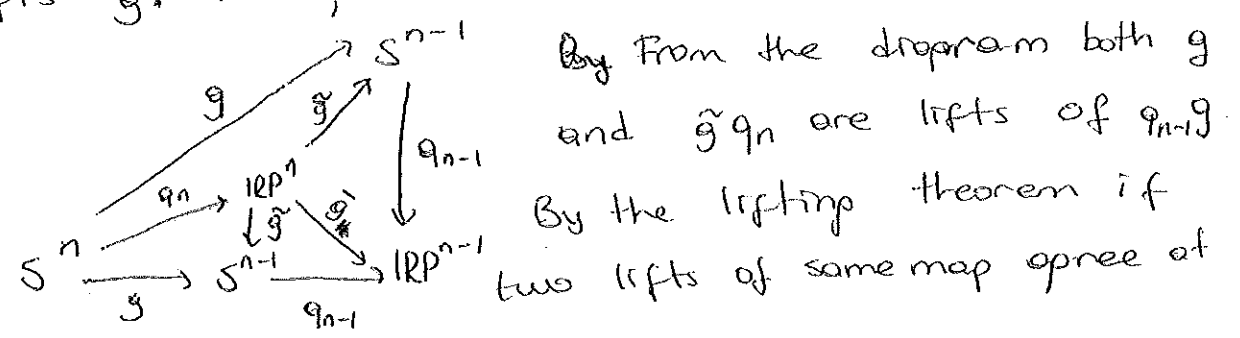 g̃.
S^{n-1}
g
g̃
q_{n-1}
q_n
RP^n
g̃
S^n
g
S^{n-1}
q_{n-1}
RP^{n-1}
From the diagram both g
and g̃ q_n are lifts of q_{n-1}g.
By the lifting theorem if
two lifts of same map agree at